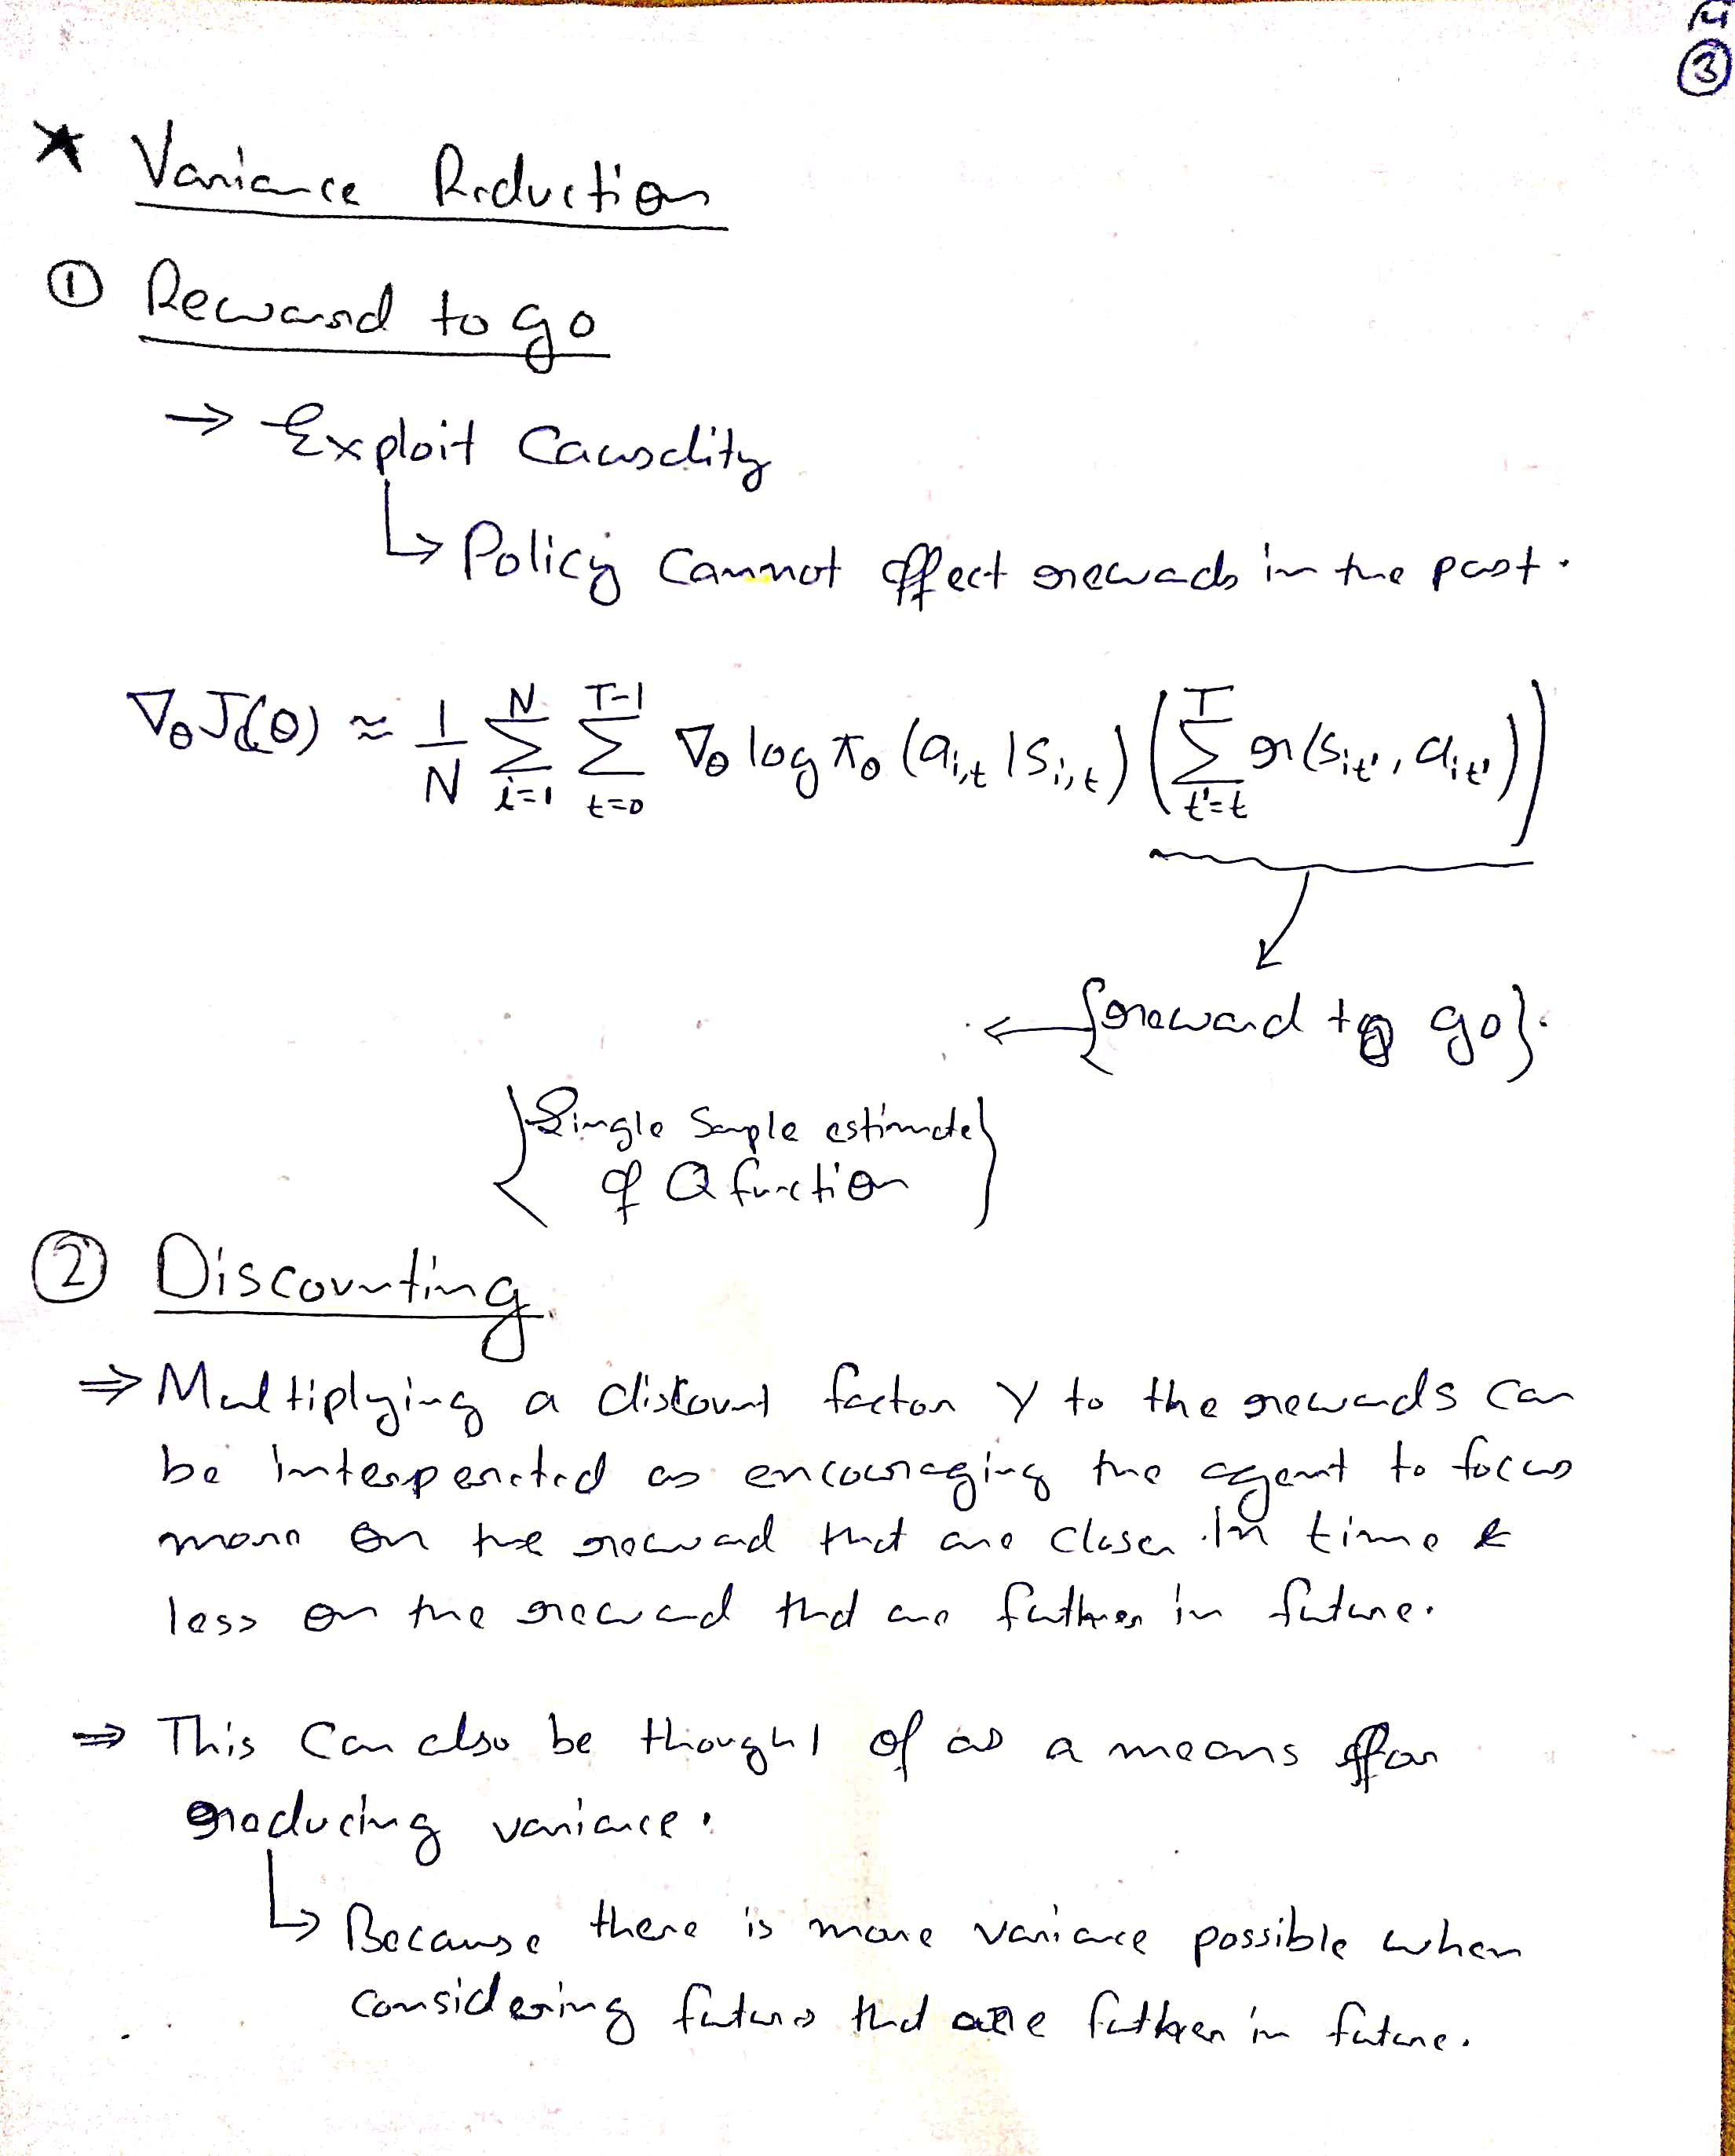 ③
* Variance Reduction
① Reward to go
→ Exploit Causality
↳ Policy Cannot effect rewards in the past.
∇θ J(θ) ≈ 1/N ∑_{i=1}^{N} ∑_{t=0}^{T-1} ∇θ log πθ (a_{i,t} | s_{i,t}) ( ∑_{t'=t}^{T} r(s_{it'}, a_{it'}) )
← {reward to go}.
{Single Sample estimate}
of Q function
② Discounting.
⇒ Multiplying a discount factor γ to the rewards can
be interpereted as encouraging the agent to focus
more on the reward that are closer in time &
less on the reward that are futher in future.
⇒ This can also be thought of as a means for
reducing variance.
↳ Because there is more variance possible when
considering future that are futher in future.